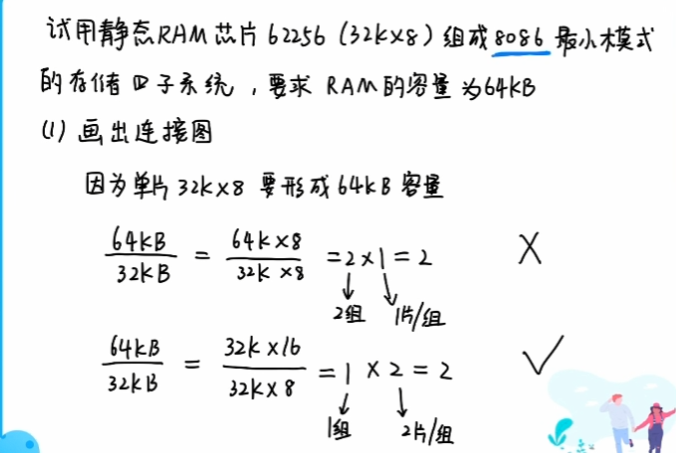 试用静态RAM芯片62256(32K×8)组成8086最小模式
的存储器子系统,要求RAM的容量为64KB
(1)画出连接图
因为单片32K×8要形成64KB容量
64KB/32KB = 64K×8/32K×8 = 2×1=2 ×
2组 1片/组
64KB/32KB = 32K×16/32K×8 = 1×2=2 ✓
1组 2片/组